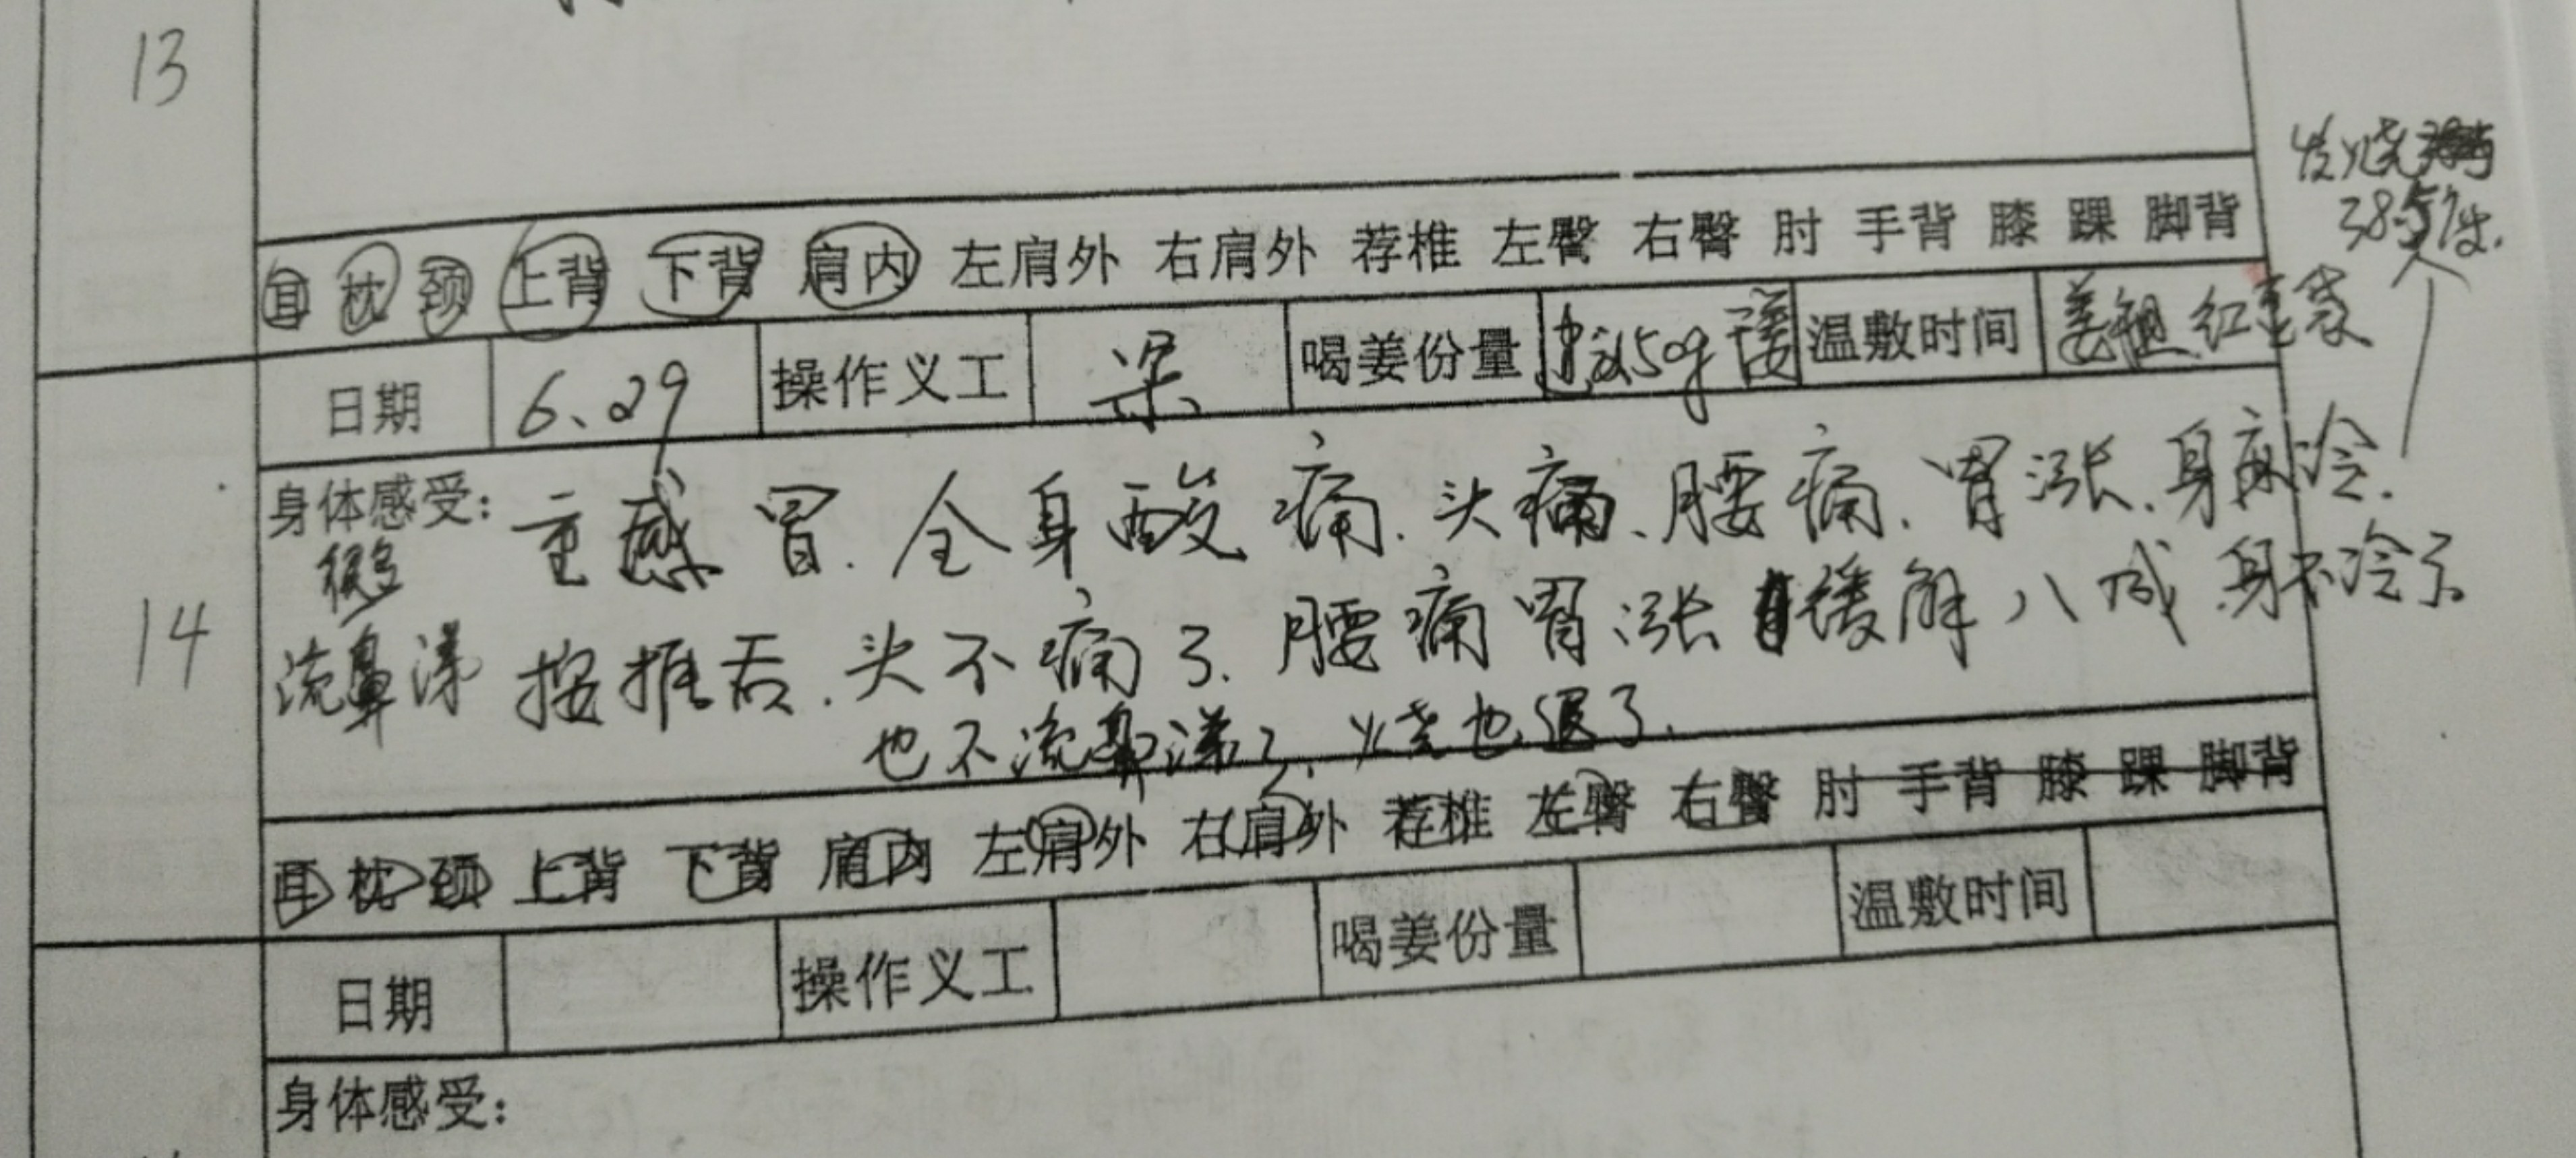 13
耳 枕 颈 上背 下背 肩内 左肩外 右肩外 荐椎 左臀 右臀 肘 手背 膝 踝 脚背
发烧
38.5度
日期 6.29 操作义工 梁 喝姜份量 50g 温敷时间 红豆袋
14
身体感受: 重感冒. 全身酸痛. 头痛、腰痛. 胃涨. 身冷.
很多
流鼻涕 按推后. 头不痛了. 腰痛胃涨缓解八成 身不冷了
也不流鼻涕了. 烧也退了.
耳 枕 颈 上背 下背 肩内 左肩外 右肩外 荐椎 左臀 右臀 肘 手背 膝 踝 脚背
日期 操作义工 喝姜份量 温敷时间
身体感受: